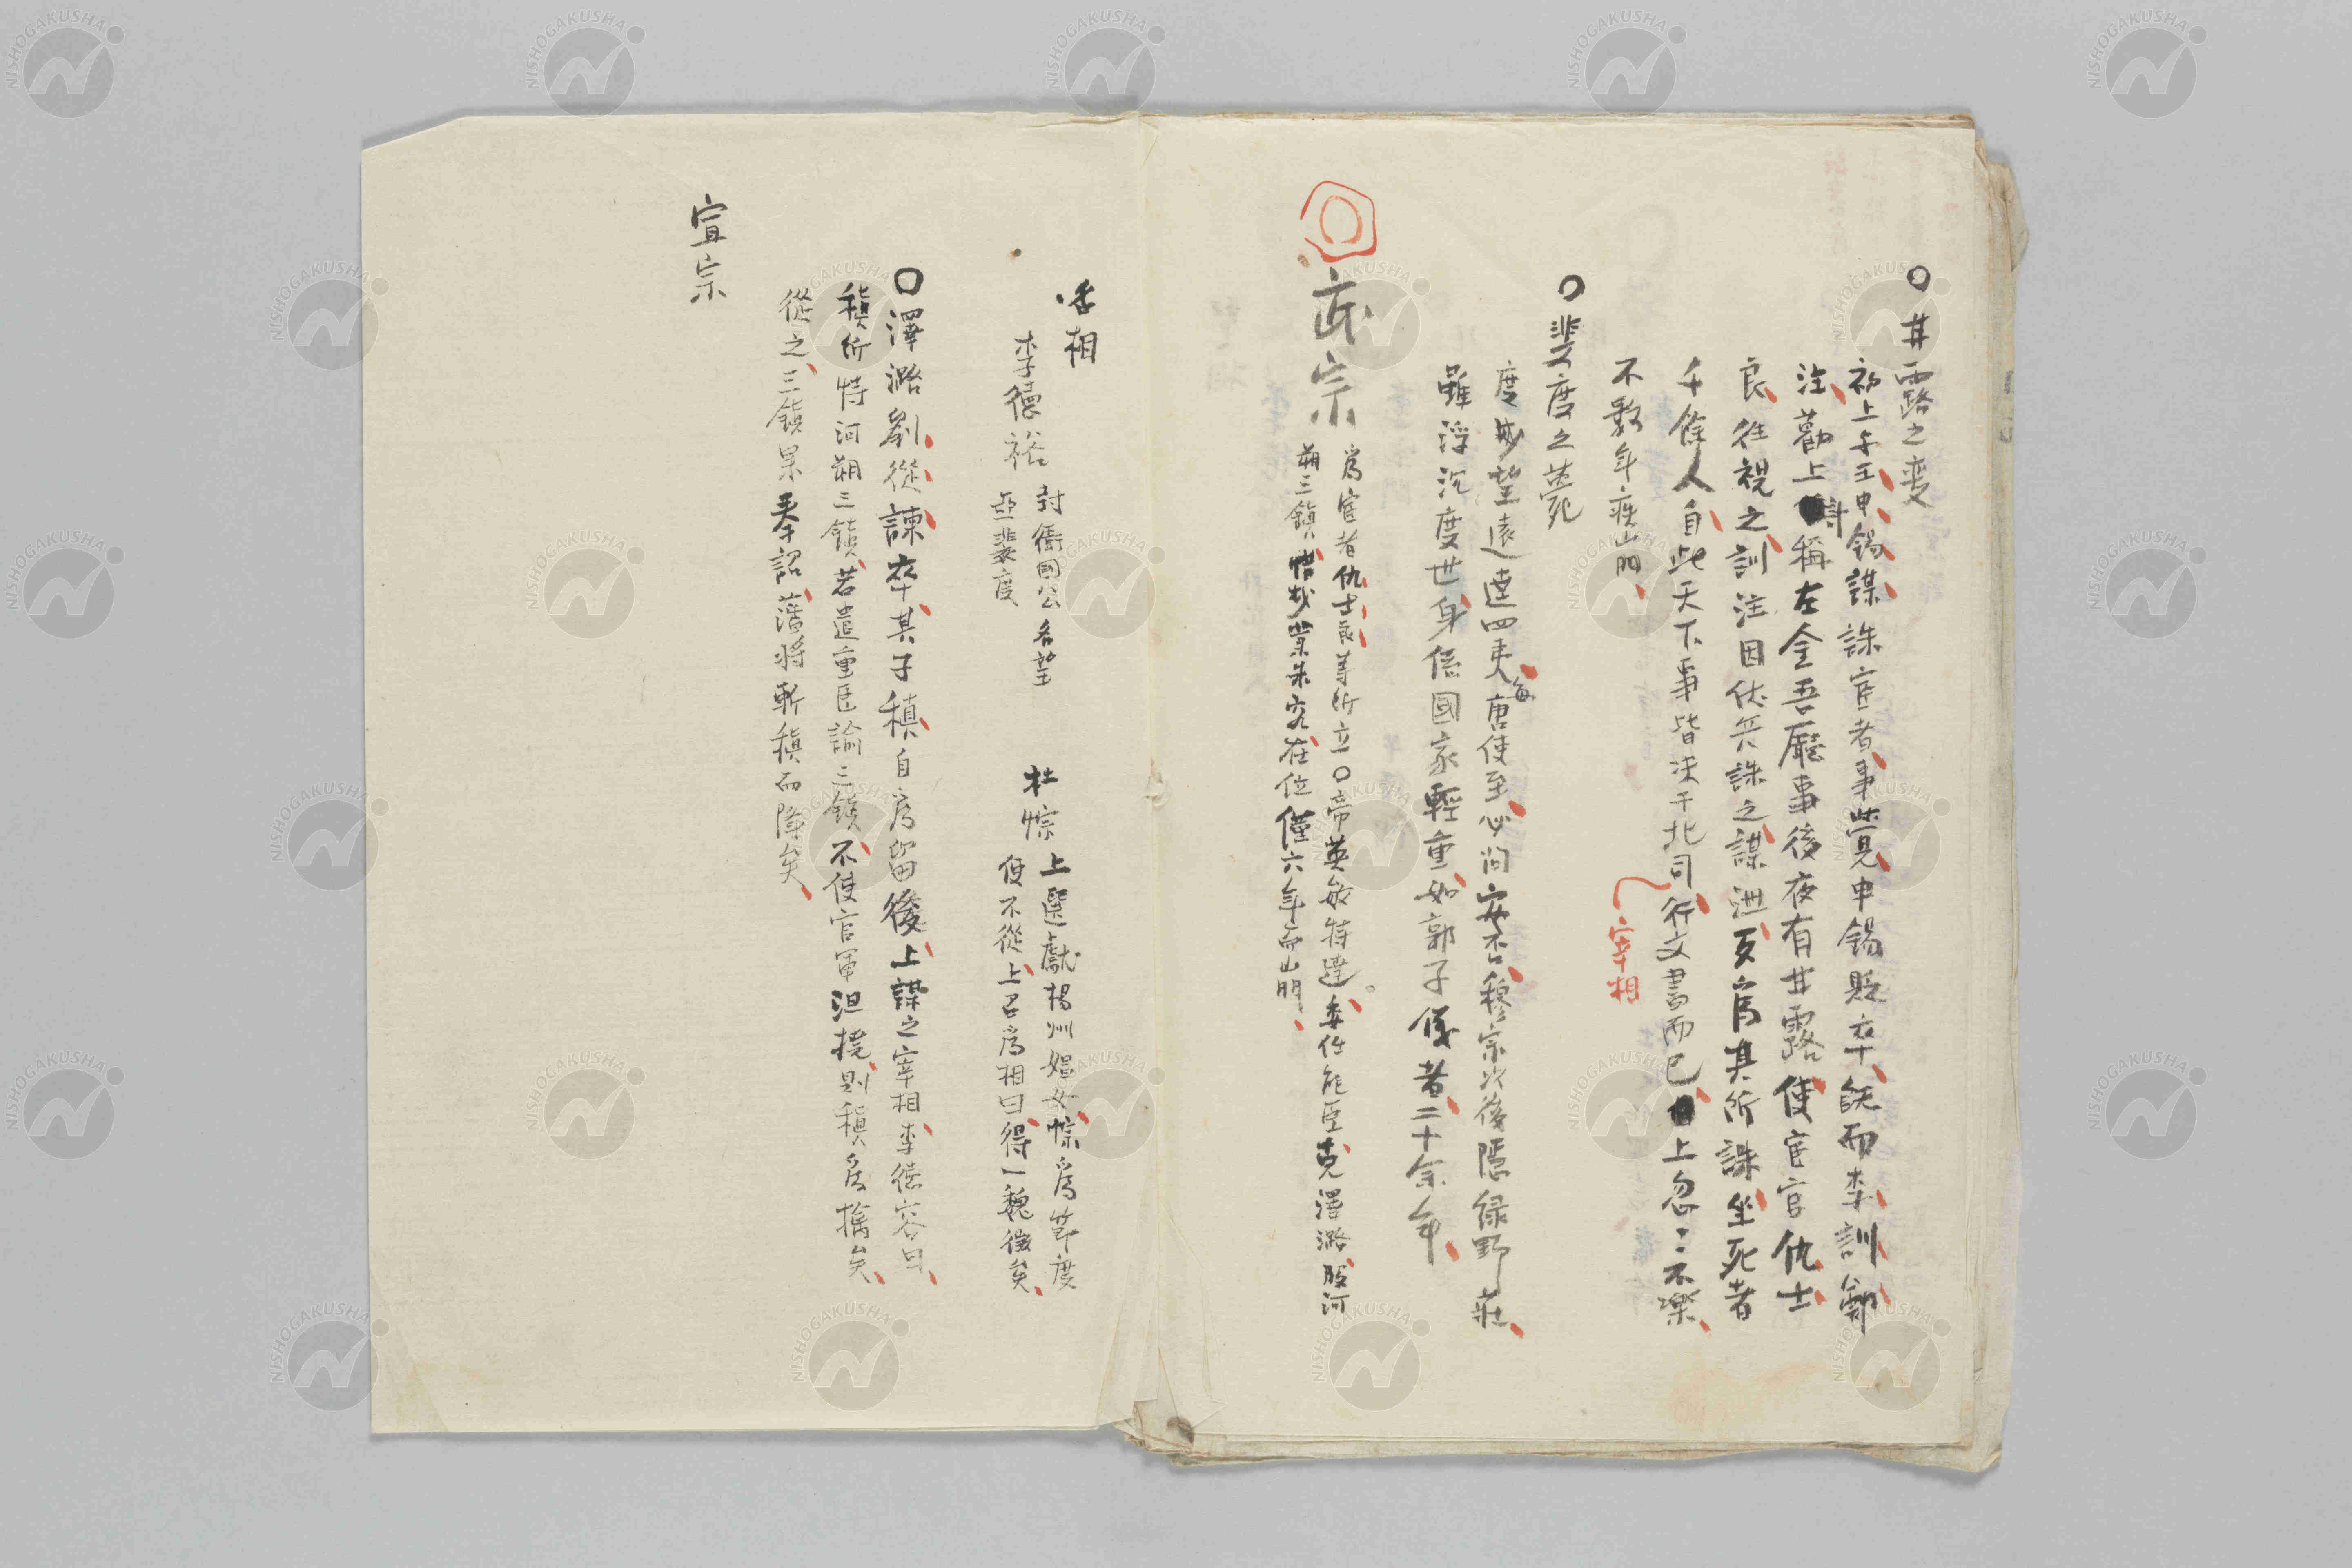 ○甘露之変
初上与王申錫謀誅宦者事覚申錫貶卒既而李訓鄭
注勸上時稱左金吾廳事後夜有甘露使宦官仇士
良往視之訓注因伏兵誅之謀洩反為其所誅坐死者
千餘人自此天下事皆决于北司行文書而已上忽々不樂
宰相
不数年疾崩
○裴度之薨
度威望遠達四夷毎唐使至必问安否穆宗以後隠緑野莊
雖浮沉度世身係國家輕重如郭子儀者二十余年
武宗
為宦者仇士良等所立○帝英敏特達委任能臣克澤潞服河
朔三鎮惜哉業未究在位僅六年而崩
相
李德裕
封衛國公名望
亞裴度
杜悰
上選獻楊州娼女悰為節度
使不從上召為相曰得一魏徵矣
○澤潞劉從諫卒其子稹自為留後上謀之宰相李德容曰
稹所恃河朔三鎮若遣重臣諭三鎮不使官軍沮撓則稹為擒矣
從之三鎮果奉詔藩将斬稹而降矣
宣宗
NISHOGAKUSHA